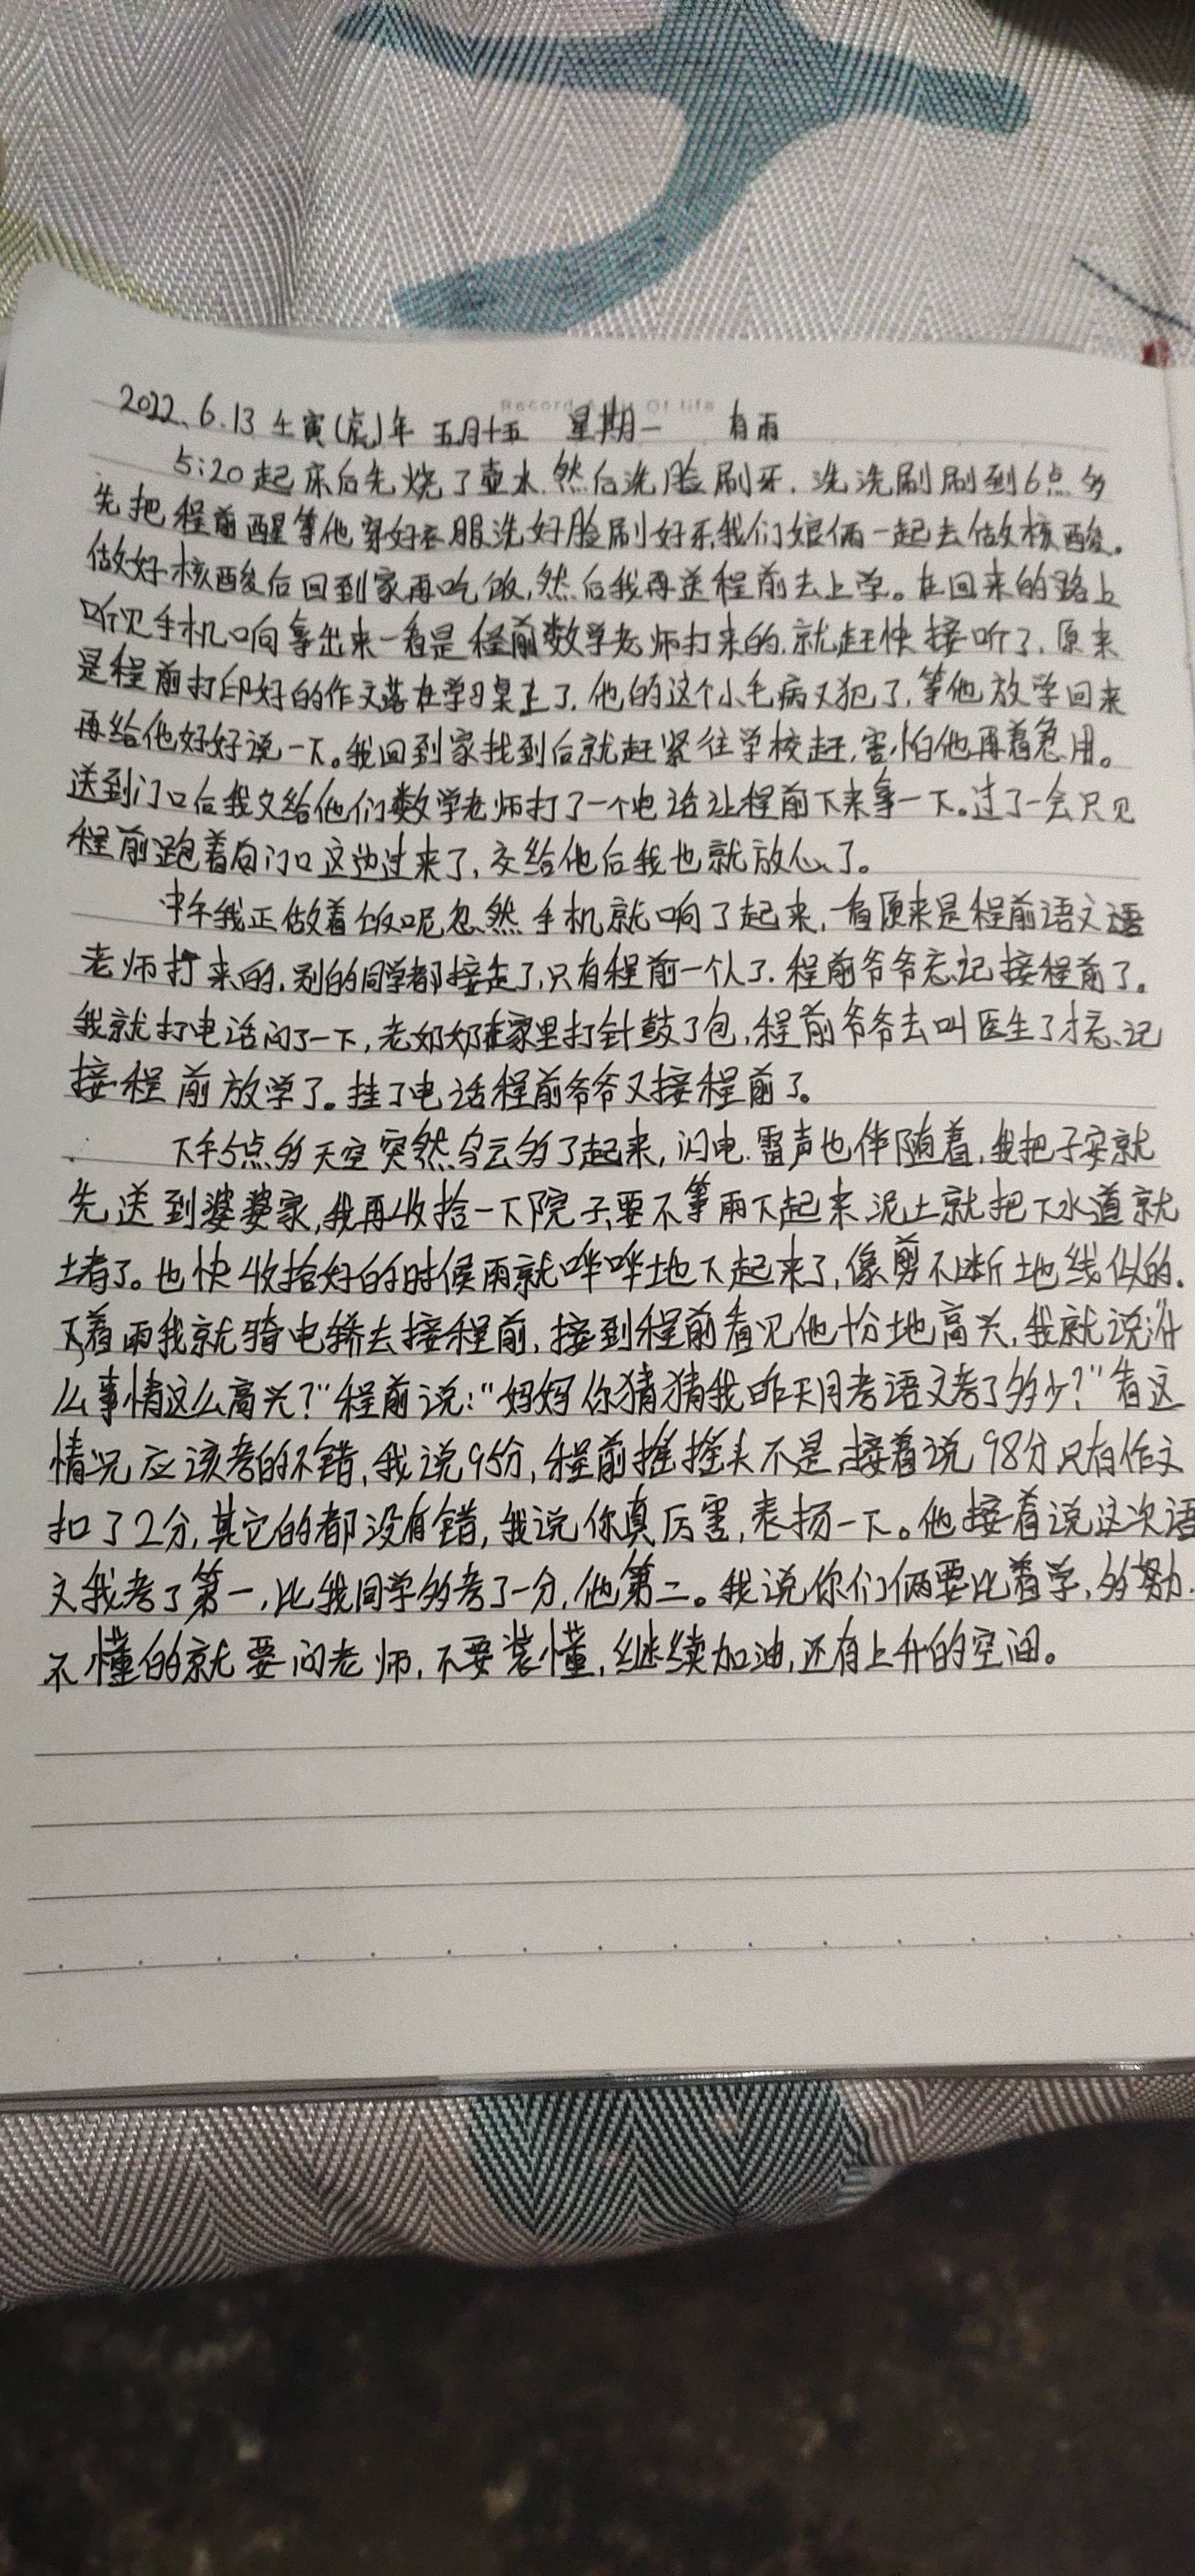 Record Of life
2022.6.13 壬寅(虎)年 五月十五 星期一 有雨
5:20起床后先烧了壶水.然后洗脸刷牙.洗洗刷刷到6点多
先把程前醒等他穿好衣服洗好脸刷好牙,我们娘俩一起去做核酸.
做好核酸后回到家再吃饭,然后我再送程前去上学。在回来的路上
听见手机响拿出来一看是程前数学老师打来的.就赶快接听了.原来
是程前打印好的作文落在学习桌上了.他的这个小毛病又犯了,等他放学回来
再给他好好说一下。我回到家找到后就赶紧往学校赶,害怕他再着急用。
送到门口后我又给他们数学老师打了一个电话让程前下来拿一下。过了一会只见
程前跑着向门口这边过来了,交给他后我也就放心了。
中午我正做着饭呢忽然手机就响了起来,一看原来是程前语文语
老师打来的.别的同学都接走了,只有程前一个人了.程前爷爷忘记接程前了。
我就打电话问了一下,老奶奶在家里打针鼓了包,程前爷爷去叫医生了才忘记
接程前放学了。挂了电话程前爷爷又接程前了。
下午5点多天空突然乌云多了起来,闪电.雷声也伴随着,我把子安就
先送到婆婆家,我再收拾一下院子,要不等雨下起来泥土就把下水道就
堵了。也快收拾好的时候雨就哗哗地下起来了,像剪不断地线似的.
下着雨我就骑电轿去接程前,接到程前看见他十分地高兴,我就说"什
么事情这么高兴?"程前说:"妈妈你猜猜我昨天月考语文考了多少?"看这
情况应该考的不错,我说95分,程前摇摇头不是,接着说98分只有作文
扣了2分,其它的都没有错,我说你真厉害,表扬一下。他接着说这次语
文我考了第一,比我同学多考了一分,他第二。我说你们俩要比着学,多努力.
不懂的就要问老师,不要装懂,继续加油,还有上升的空间。